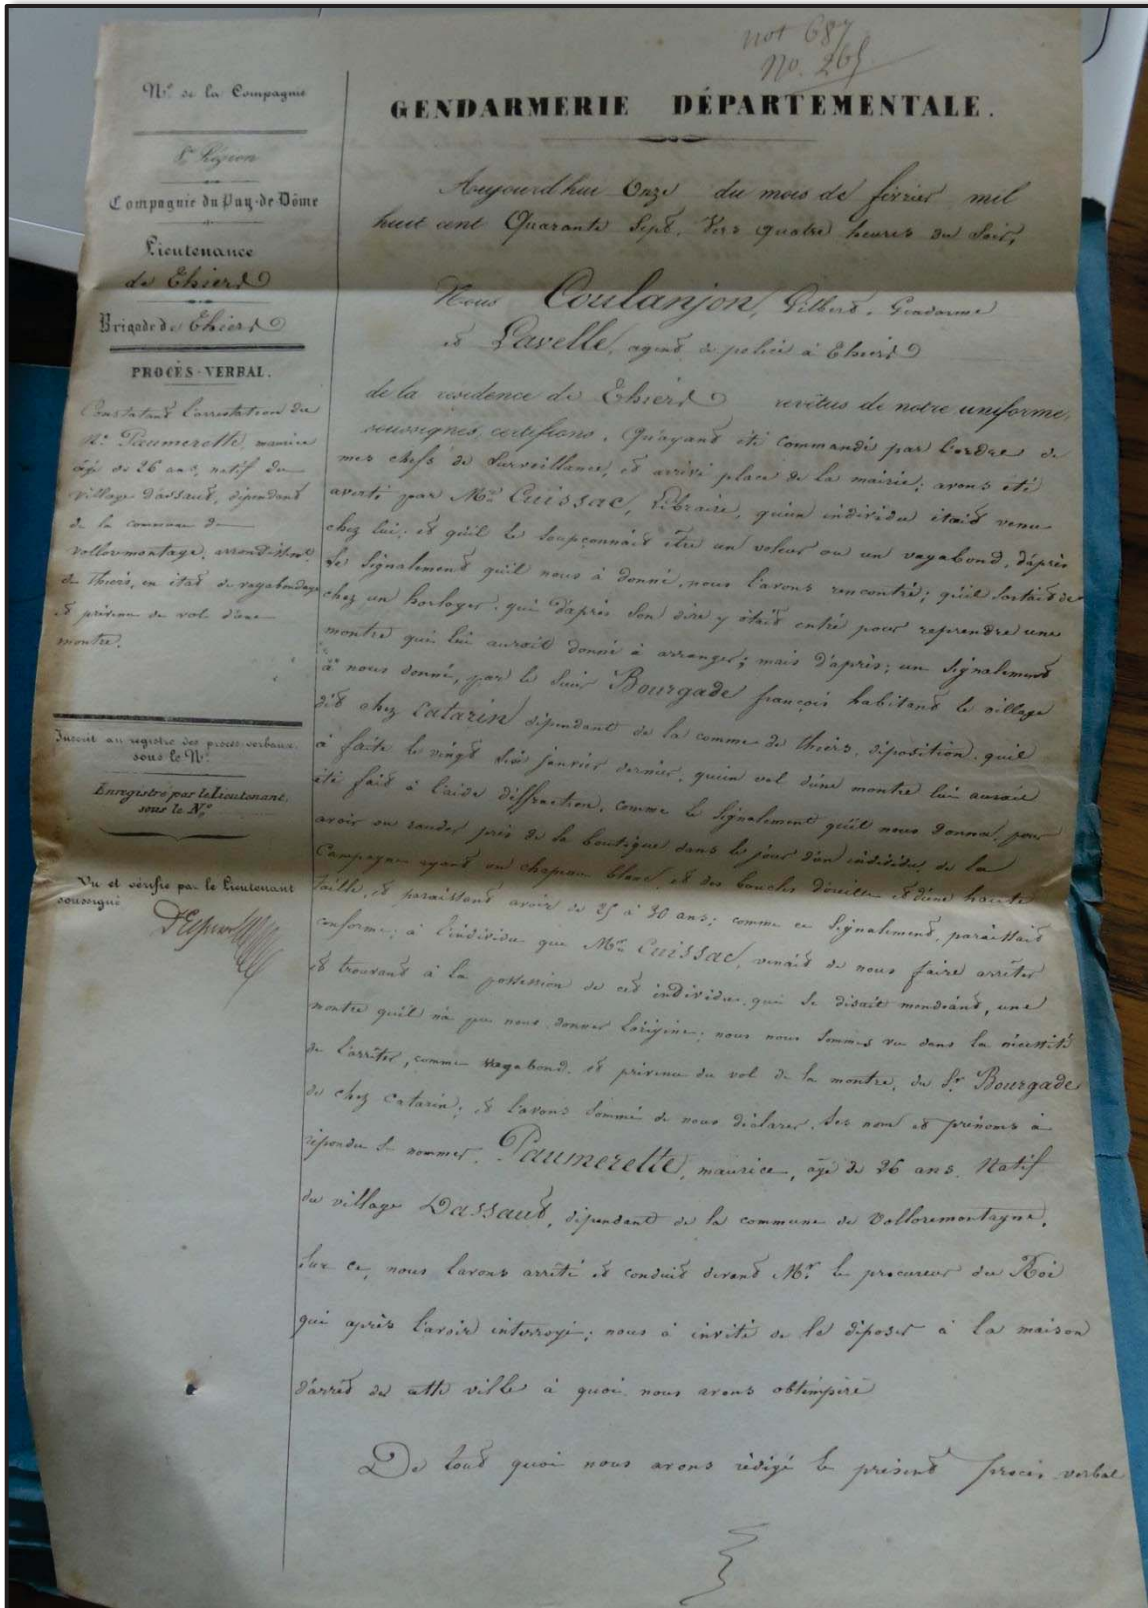 not 687
No. 265
N.º de la Compagnie
Légion
Compagnie du Puy-de-Dôme
Lieutenance
de Thiers
Brigade de Thiers
PROCÈS-VERBAL.
Constatant l'arrestation du
Né Paumerette, maurice
âgé de 26 ans, natif du
village d'assaut, dépendant
de la commune de
vollore montagne, arrond.
de thiers, en état de vagabondage
et prévenu de vol d'une
montre.
Inscrit au registre des procès-verbaux
sous le N.º
Enregistré par le Lieutenant,
sous le N.º
Vu et vérifié par le Lieutenant
soussigné
GENDARMERIE DÉPARTEMENTALE.
Aujourd'hui Onze du mois de février mil
huit cent Quarante Sept, Vers quatre heures du Soir,
Nous Coulanjon, Gilbert, Gendarme
et Lavelle, agent de police à Thiers
de la residence de Thiers revêtus de notre uniforme,
soussignés, certifions, Qu'ayant été commandé par l'ordre de
mes chefs de Surveillance, et arrivé place de la mairie; avons été
averti par Mr. Cuissac, Libraire, qu'un individu était venu
chez lui; et qu'il le soupçonnait être un voleur ou un vagabond, d'après
le Signalement qu'il nous à donné, nous l'avons rencontré; qu'il sortait de
chez un horloger, qui d'après son dire y était entré pour reprendre une
montre qui lui auroit donné à arranger; mais d'après; un Signalement
à nous donné, par le Sieur Bourgade françois habitant le village
dit chez Catarin dépendant de la comme de thiers, déposition, qu'il
à faite le vingt Six janvier dernier, qu'un vol d'une montre lui aurait
été fait à l'aide d'effraction, comme le Signalement qu'il nous donna, pour
avoir vu rauder près de la boutique dans le jour d'un individu, de la
Campagne ayant un chapeau blanc, et des boucles d'oreille et d'une haute
taille, et paraissant avoir de 25 à 30 ans; comme ce Signalement, paraissait
conforme; à l'individu que Mr. Cuissac, venait de nous faire arrêter
et trouvant à la possession de cet individu, qui se disait mendiant, une
montre qu'il n'a pu nous donner l'origine; nous nous sommes vu dans la nécessité
de l'arrêter, comme vagabond, et prévenu du vol de la montre, du Sr. Bourgade
de chez Catarin; et l'avons sommé de nous déclarer, ses nom et prénoms à
répondu se nommer, Paumerette, maurice, âgé de 26 ans, Natif
du village Dassaut, dépendant de la commune de Volloremontagne,
Sur ce, nous l'avons arrêté et conduit devant Mr. le procureur du Roi
qui après l'avoir interrogé; nous à invité de le déposer à la maison
d'arrêt de cette ville à quoi nous avons obtempéré
De tout quoi nous avons rédigé le présent procès-verbal